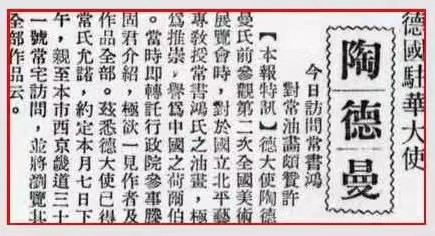 德國駐華大使
陶德曼
今日訪問常書鴻
對常油畫頗贊許
【本報特訊】德大使陶德
曼氏前參觀第二次全國美術
展覽會時，對於國立北平藝
專敎授常書鴻氏之油畫，極
爲推崇，譽爲中國之荷爾伯
。當時即轉託行政院參事滕
固君介紹，極欲一見作者及
作品全部。茲悉德大使已得
常氏允諾，約定本月七日下
午，親至本市西京畿道三十
一號常宅訪問，並將瀏覽其
全部作品云。